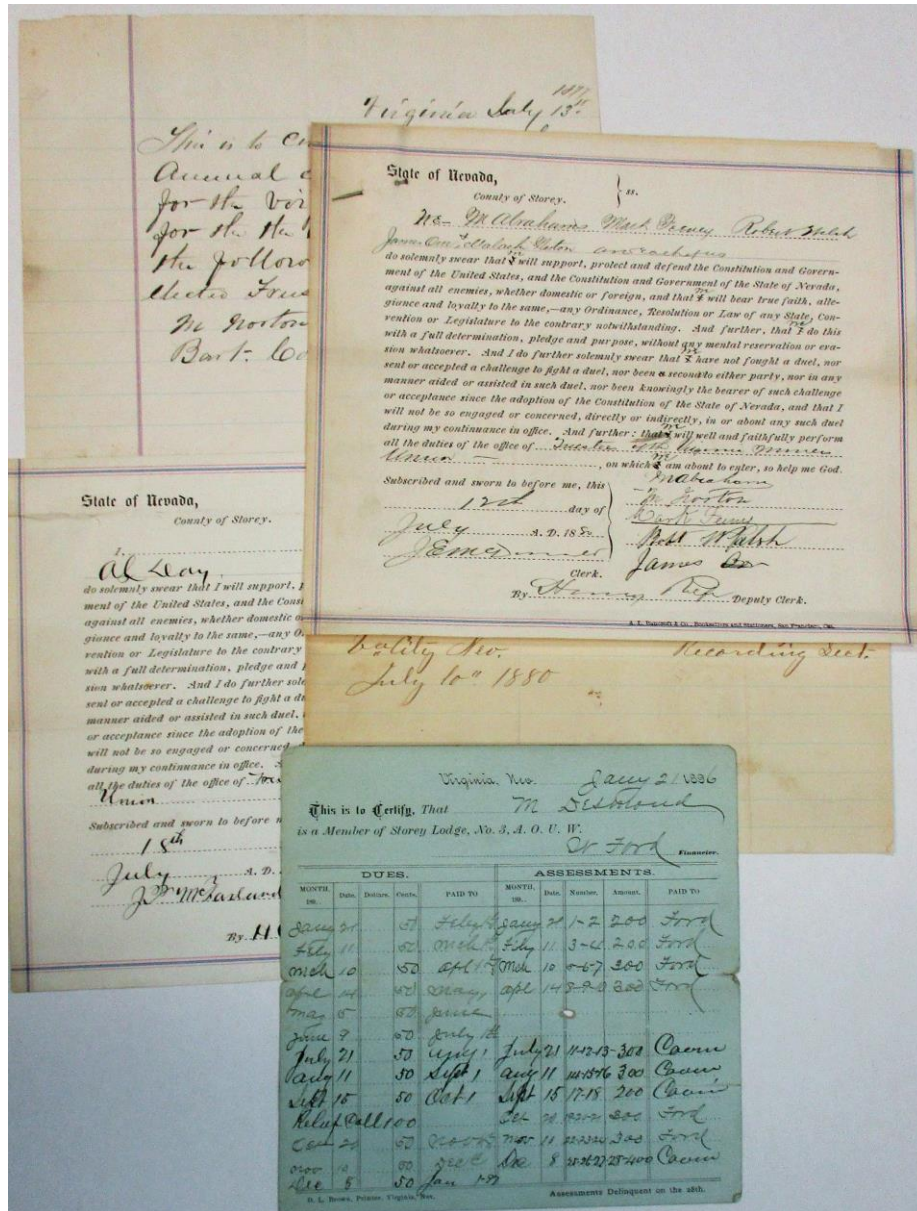 1877
Virginia July 13th
This is to
Annual
for the
for the the
the follow
elected Trus
M Norton
Bart.
State of Nevada,
County of Storey. } ss.
We M Abrahams Mark Feeney Robert Walsh
James Orr
do solemnly swear that I will support, protect and defend the Constitution and Govern-
ment of the United States, and the Constitution and Government of the State of Nevada,
against all enemies, whether domestic or foreign, and that I will bear true faith, alle-
giance and loyalty to the same,—any Ordinance, Resolution or Law of any State, Con-
vention or Legislature to the contrary notwithstanding. And further, that I do this
with a full determination, pledge and purpose, without any mental reservation or eva-
sion whatsoever. And I do further solemnly swear that I have not fought a duel, nor
sent or accepted a challenge to fight a duel, nor been a second to either party, nor in any
manner aided or assisted in such duel, nor been knowingly the bearer of such challenge
or acceptance since the adoption of the Constitution of the State of Nevada, and that I
will not be so engaged or concerned, directly or indirectly, in or about any such duel
during my continuance in office. And further: that I will well and faithfully perform
all the duties of the office of Trustees Miners
Union, on which I am about to enter, so help me God.
Subscribed and sworn to before me, this
12th day of
July A. D. 1880
Clerk.
M Abrahams
M Norton
Mark Feeney
Robt Walsh
James Orr
By Henry Deputy Clerk.
A. L. Bancroft & Co., Booksellers and Stationers, San Francisco, Cal.
State of Nevada,
County of Storey.
I,
Al Day
do solemnly swear that I will support, p
ment of the United States, and the Const
against all enemies, whether domestic o
giance and loyalty to the same,—any O
vention or Legislature to the contrary
with a full determination, pledge and p
sion whatsoever. And I do further sole
sent or accepted a challenge to fight a du
manner aided or assisted in such duel,
or acceptance since the adoption of the
will not be so engaged or concerned, d
during my continuance in office. A
all the duties of the office of
Union
Subscribed and sworn to before m
18th
July A. D.
McFarland
By H
City Nev. Recording Sect.
July 10" 1880
Virginia, Nev. Jany 21 1896
This is to Certify, That M Desmond
is a Member of Storey Lodge, No. 3, A. O. U. W.
W Ford Financier.
DUES. ASSESSMENTS.
MONTH, 189.. Date. Dollars. Cents. PAID TO MONTH, 189.. Date. Number. Amount. PAID TO
Jany 21 50 Feby 1st Jany 21 1-2 200 Ford
Feby 11 50 Mch 1st Feby 11 3-4 200 Ford
Mch 10 50 Apl 1st Mch 10 5-6-7 300 Ford
Apl 14 50 May, Apl 14 8-9-0 300 Ford
May 5 50 June
June 9 50 July 1st
July 21 50 Aug 1 July 21 11-12-13 300
Aug 11 50 Sept 1 Aug 11 14-15-16 300
Sept 15 50 Oct 1 Sept 15 17-18 200
Relief Call 100 Oct 20 300 Ford
Oct 20 50 Nov Nov 10 22-23-24 300 Ford
Nov 10 50 Dec Dec 8 25-26-27-28 400
Dec 5 50 Jan 1-97
D. L. Brown, Printer, Virginia, Nev. Assessments Delinquent on the 28th.